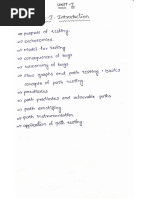 UNIT-I
I. Introduction
→ purpose of testing
→ Dichotomies
→ Model for testing
→ consequences of bugs
→ taxonomy of bugs
→ Flow graphs and path testing : Basics
concepts of path testing
→ predicates
→ path predicates and achievable paths
→ path sensitizing
→ path instrumentation
→ application of path testing